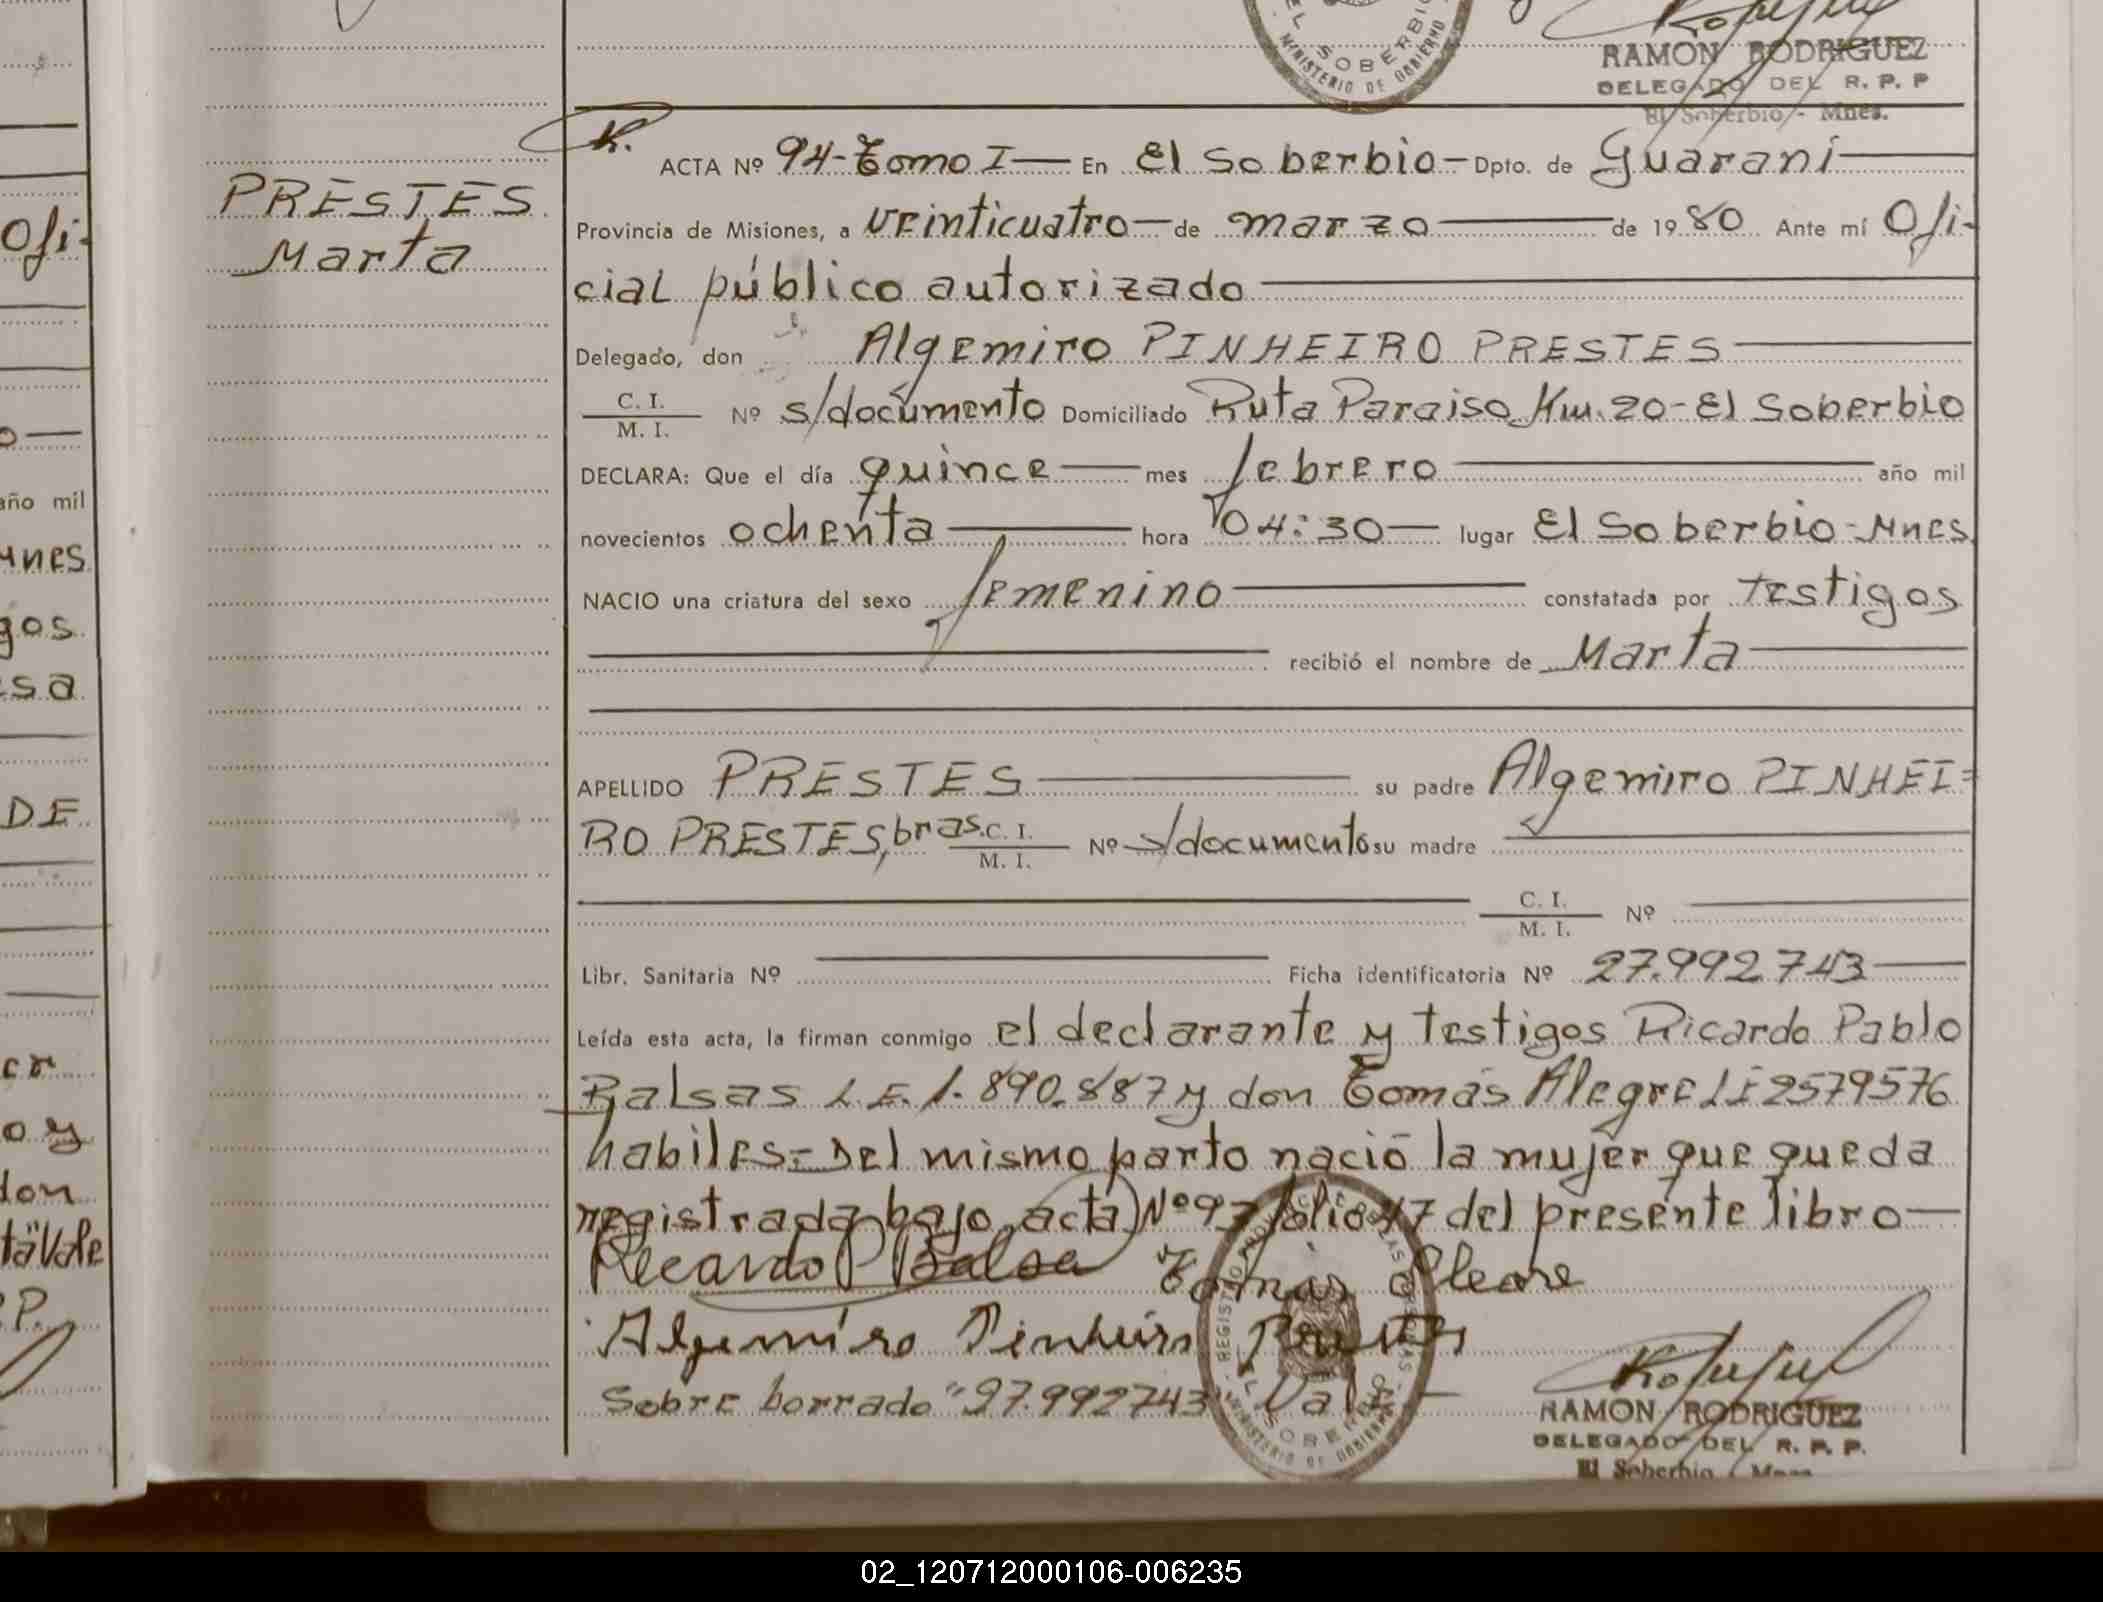 EL SOBERBIO
MINISTERIO DE GOBIERNO
RAMON RODRIGUEZ
DELEGADO DEL R. P. P
El Soberbio - Mnes.
PRESTES
Marta
ACTA Nº 94-Tomo I — En El Soberbio - Dpto. de Guaraní
Provincia de Misiones, a veinticuatro — de marzo — de 1980 Ante mí Ofi-
cial público autorizado
Delegado, don Algemiro PINHEIRO PRESTES
C. I.
M. I. Nº s/documento Domiciliado Ruta Paraiso Km. 20 - El Soberbio
DECLARA: Que el día quince — mes febrero — año mil
novecientos ochenta — hora 04:30 — lugar El Soberbio - Mnes
NACIO una criatura del sexo femenino — constatada por testigos
recibió el nombre de Marta
APELLIDO PRESTES — su padre Algemiro PINHEI=
RO PRESTES, bras. C. I.
M. I. Nº s/documento su madre
C. I.
M. I. Nº
Libr. Sanitaria Nº — Ficha identificatoria Nº 27.992.743
Leída esta acta, la firman conmigo el declarante y testigos Ricardo Pablo
Balsas L.E. 1.890.887 y don Tomás Alegre LE 2579576
habiles - Del mismo parto nació la mujer que queda
registrada bajo acta Nº 93 folio 47 del presente libro
Ricardo P Balsa Tomas Alegre
Algemiro Pinheiro Prestes
Sobre borrado "27.992743" Vale
RAMON RODRIGUEZ
DELEGADO DEL R. P. P.
El Soberbio - Mnes
Ofi-
año mil
Mnes
gos
esa
DE
cr
o y
don
ta" Vale
P.
02_120712000106-006235